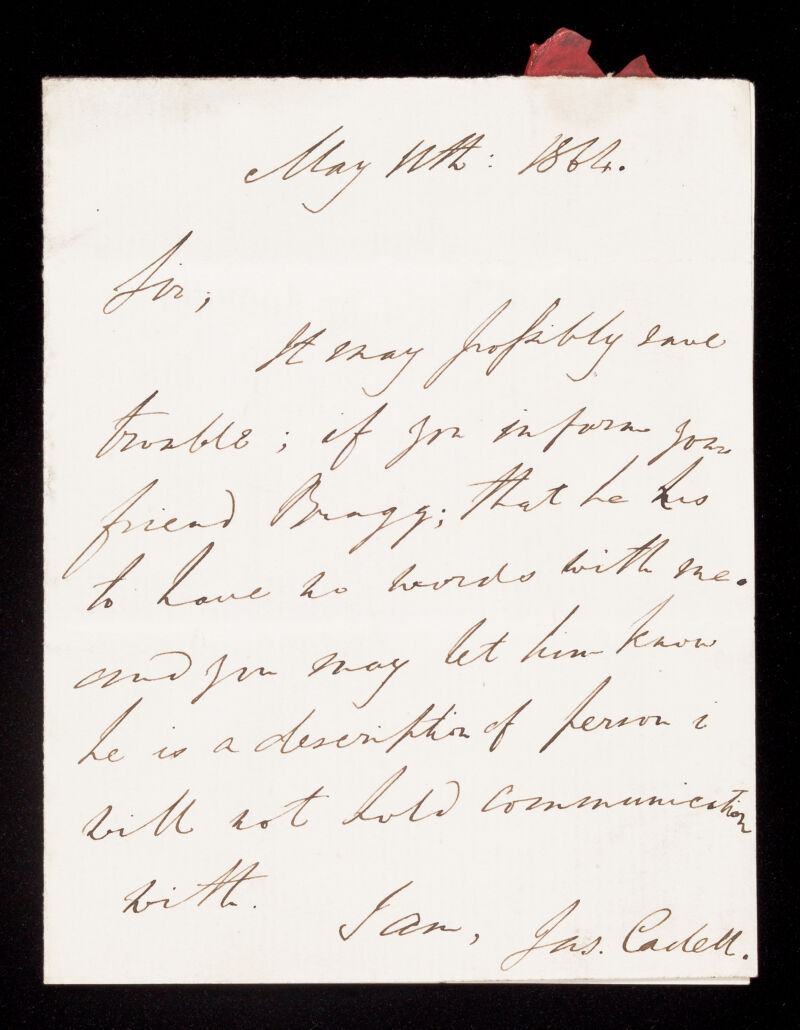 May 11th: 1864.
Sir;
It may possibly save
trouble; if you inform your
friend Bragg; that he has
to have no words with me.
and you may let him know
he is a description of person i
will not hold communication
with.
I am, Jas. Cadell.